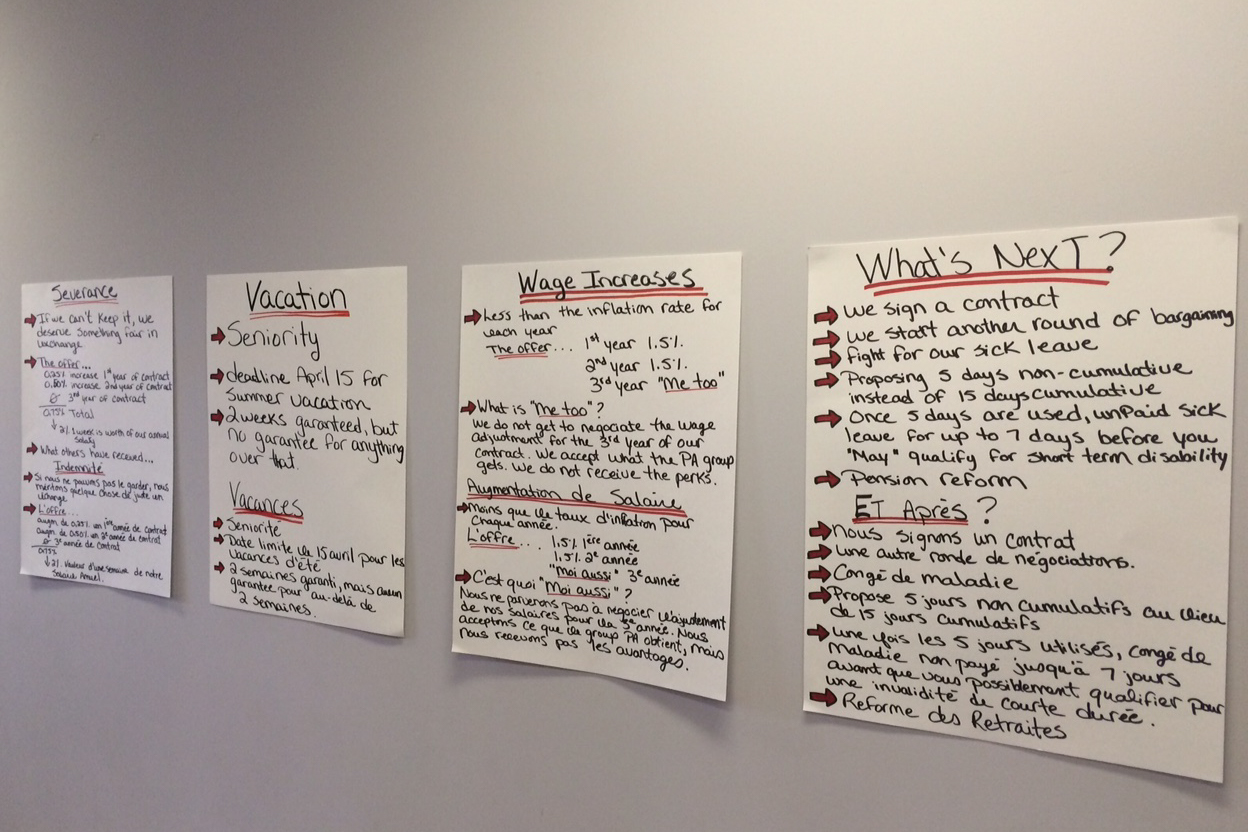 Severance
If we can't keep it, we
deserve something fair in
exchange
The offer...
0.25% increase 1st year of contract
0.50% increase 2nd year of contract
Ø 3rd year of contract
0.75% Total
↓ 2% 1 week is worth of our annual
salary
What others have received...
Indemnité
Si nous ne pouvons pas le garder, nous
méritons quelque chose de juste en
échange
L'offre...
augm. de 0.25% en 1ère année de contrat
augm. de 0.50% en 2e année de contrat
Ø 3e année de contrat
0.75%
↓ 2% Valeur d'une semaine de notre
Salaire Annuel.
Vacation
Seniority
deadline April 15 for
Summer vacation
2 weeks garanteed, but
no garantee for anything
over that.
Vacances
Seniorité
Date limite le 15 avril pour les
vacances d'été
2 semaines garanti, mais aucun
garantee pour au-delà de
2 semaines.
Wage Increases
Less than the inflation rate for
each year
The offer... 1st year 1.5%
2nd year 1.5%
3rd year "Me too"
What is "Me too"?
We do not get to negotiate the wage
adjustment for the 3rd year of our
contract. We accept what the PA group
gets. We do not receive the perks.
Augmentation de Salaire
Moins que le taux d'inflation pour
chaque année.
L'offre... 1.5% 1ère année
1.5% 2e année
"Moi aussi" 3e année
C'est quoi "Moi aussi"?
Nous ne parvenons pas à négocier l'ajustement
de nos salaires pour la 3e année. Nous
acceptons ce que le group PA obtient, mais
nous recevons pas les avantages.
What's Next?
We sign a contract
We start another round of bargaining
fight for our sick leave
Proposing 5 days non-cumulative
instead of 15 days cumulative
Once 5 days are used, unpaid sick
leave for up to 7 days before you
"May" qualify for short term disability
Pension reform
ET Après?
Nous signons un contrat
une autre ronde de négociations.
Congé de maladie
Propose 5 jours non cumulatifs au lieu
de 15 jours cumulatifs
une fois les 5 jours utilisés, congé de
maladie non payé jusqu'à 7 jours
avant que vous possiblement qualifier pour
une invalidité de courte durée.
Reforme des Retraites